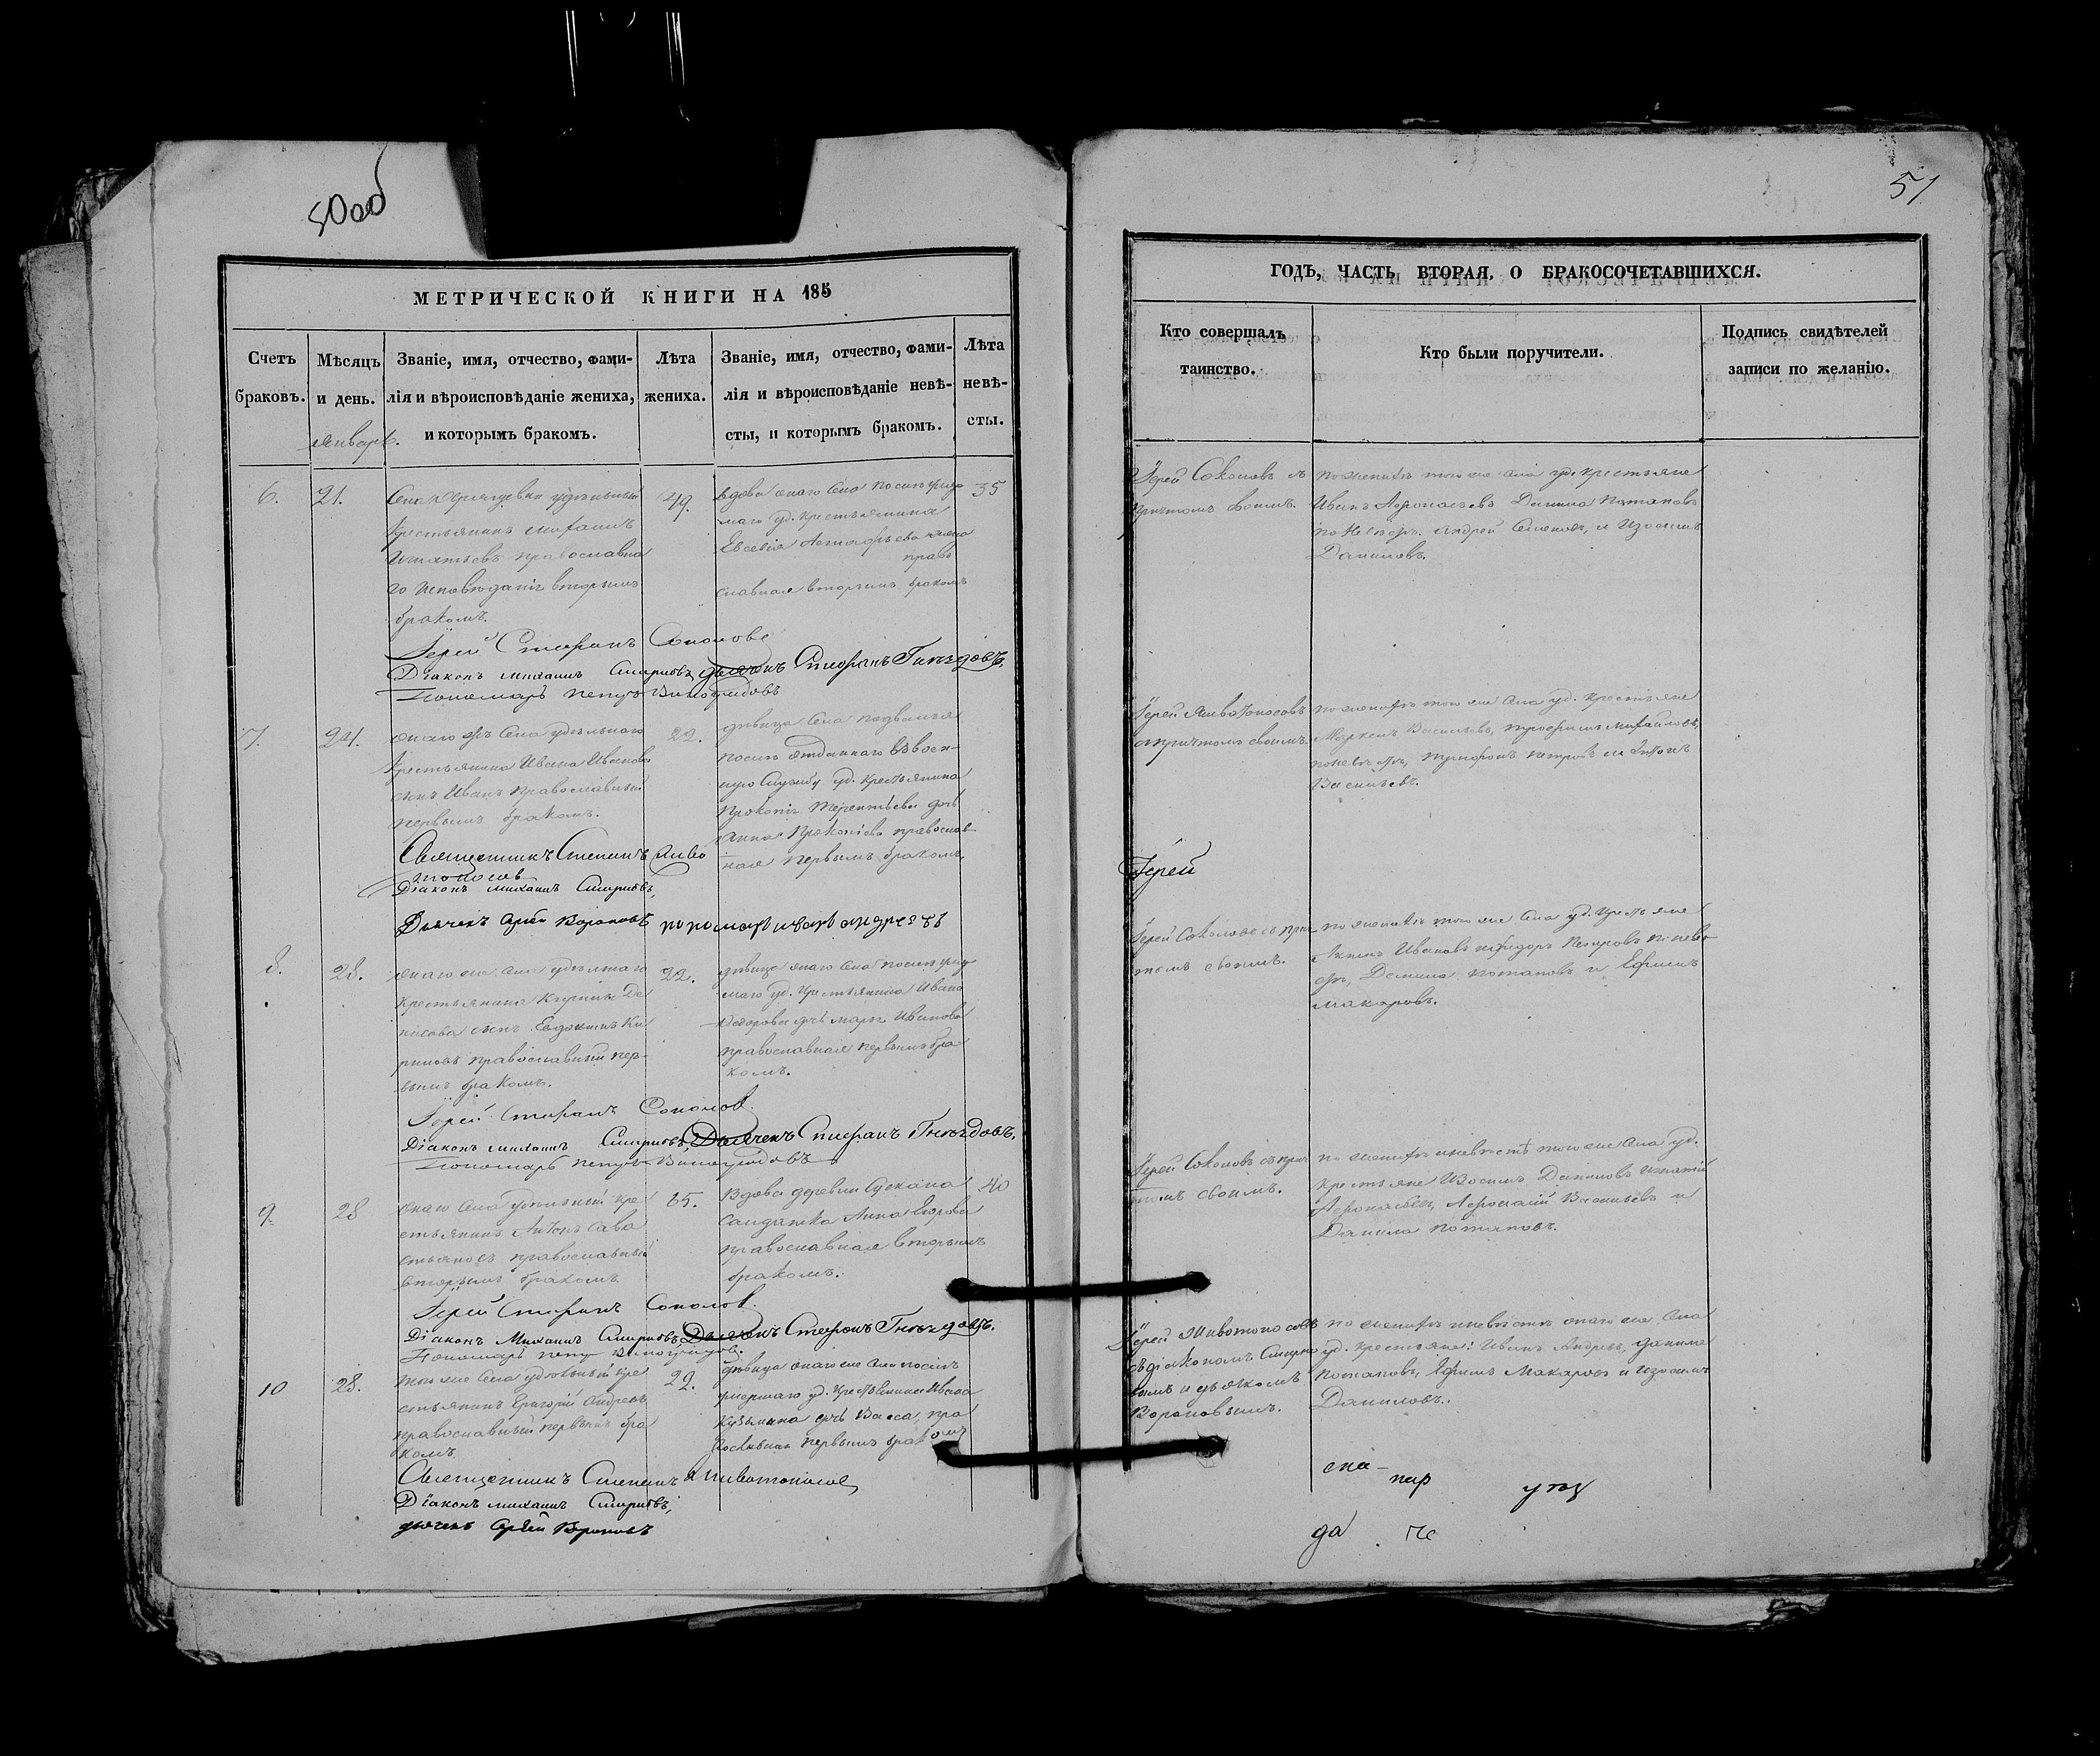 50об
МЕТРИЧЕСКОЙ КНИГИ НА 185
Счетъ браковъ.
Мѣсяцъ и день.
Званіе, имя, отчество, фами-
лія и вѣроисповѣданіе жениха,
и которымъ бракомъ.
Лѣта жениха.
Званіе, имя, отчество, фами-
лія и вѣроисповѣданіе невѣ-
сты, и которымъ бракомъ.
Лѣта невѣ-
сты.
январь.
6.
21.
Села удѣльный
крестьянинъ
Игнатьевъ православна
го исповѣданія вторымъ
бракомъ.
49.
вдова онаго села послѣ умер
шаго уд. крестьянина
Евсевія Астафьева
право
славная вторымъ бракомъ
35
Іерей Стефанъ Соколовъ
Діаконъ Михаилъ Смирновъ, дьячекъ Стефанъ Гнѣздовъ,
Пономарь Петръ Виноградовъ
7.
24.
онаго же села удѣльнаго
крестьянина Ивана Иванова
сынъ Иванъ православный
первымъ бракомъ.
22.
дѣвица села
послѣ отданнаго въ воен-
ную службу уд. крестьянина
Прокопія Терентьева дочь
Анна Прокопіева православ
ная первымъ бракомъ.
Священникъ Стефанъ Живо
тоносовъ
Діаконъ Михаилъ Смирновъ,
Дьячекъ Вороновъ пономарь иванъ андреевъ
8.
28.
онаго же села удѣльнаго
крестьянина Де
нисова сынъ Евдокимъ Ки
риловъ православный пер-
вымъ бракомъ.
22.
дѣвица онаго села послѣ умер
шаго уд. крестьянина Ивана
Федорова дочь Марья Иванова
православная первымъ бра
комъ.
Іерей Стефанъ Соколовъ.
Діаконъ Михаилъ Смирновъ, Дьячекъ Стефанъ Гнѣздовъ.
Пономарь Петръ Виноградовъ
9.
28
онаго села удѣльный кре
стьянинъ Антонъ Сава
стьяновъ православный
вторымъ бракомъ
65.
Вдова деревни
Анна Егорова
православная вторымъ
бракомъ.
40
Іерей Стефанъ Соколовъ.
Діаконъ Михаилъ Смирновъ, Дьячекъ Стефанъ Гнѣздовъ.
Пономарь Петръ Виноградовъ.
10
28.
того же села удѣльный кре
стьянинъ Григорій Андреевъ
православный первымъ бра
комъ
22.
дѣвица онаго же села послѣ
умершаго уд. крестьянина Ивана
Кузьмина дочь Васса, пра
вославная первымъ бракомъ
Священникъ Стефанъ Животоносовъ
Діаконъ Михаилъ Смирновъ,
дьячекъ Вороновъ
51
ГОДЪ, ЧАСТЬ ВТОРАЯ, О БРАКОСОЧЕТАВШИХСЯ.
Кто совершалъ
таинство.
Кто были поручители.
Подпись свидѣтелей
записи по желанію.
Іерей Соколовъ съ
причтомъ своимъ.
по женихѣ того же села уд. крестьяне
Иванъ Афонасьевъ Данила Потаповъ
по невѣстѣ. Андрей Семеновъ, и Изосимъ
Даниловъ.
Іерей Животоносовъ
съ причтомъ своимъ.
по женихѣ того же села уд. крестьяне
Маркелъ Васильевъ, Трофимъ Михайловъ,
по невѣстѣ, Трифонъ Петровъ и Антонъ
Васильевъ.
Іерей
Іерей Соколовъ съ прич
томъ своимъ.
по женихѣ того же села уд. крестьяне
Ивановъ и Федоръ Петровъ по невѣ
стѣ, Данила Потаповъ и Ефимъ
Макаровъ.
Іерей Соколовъ съ прич
томъ своимъ.
по женихѣ и невѣстѣ того же села уд.
крестьяне Изосимъ Даниловъ Игнатій
Афонасьевъ, Афонасій Васильевъ и
Данила Потаповъ.
Іерей Животоносовъ
съ діакономъ Смирно
вымъ и дьячкомъ
Вороновымъ.
по женихѣ и невѣстѣ онаго же села
уд. крестьяне: Иванъ Андреевъ, Данила
Потаповъ, Ефимъ Макаровъ и Изосимъ
Даниловъ.
да